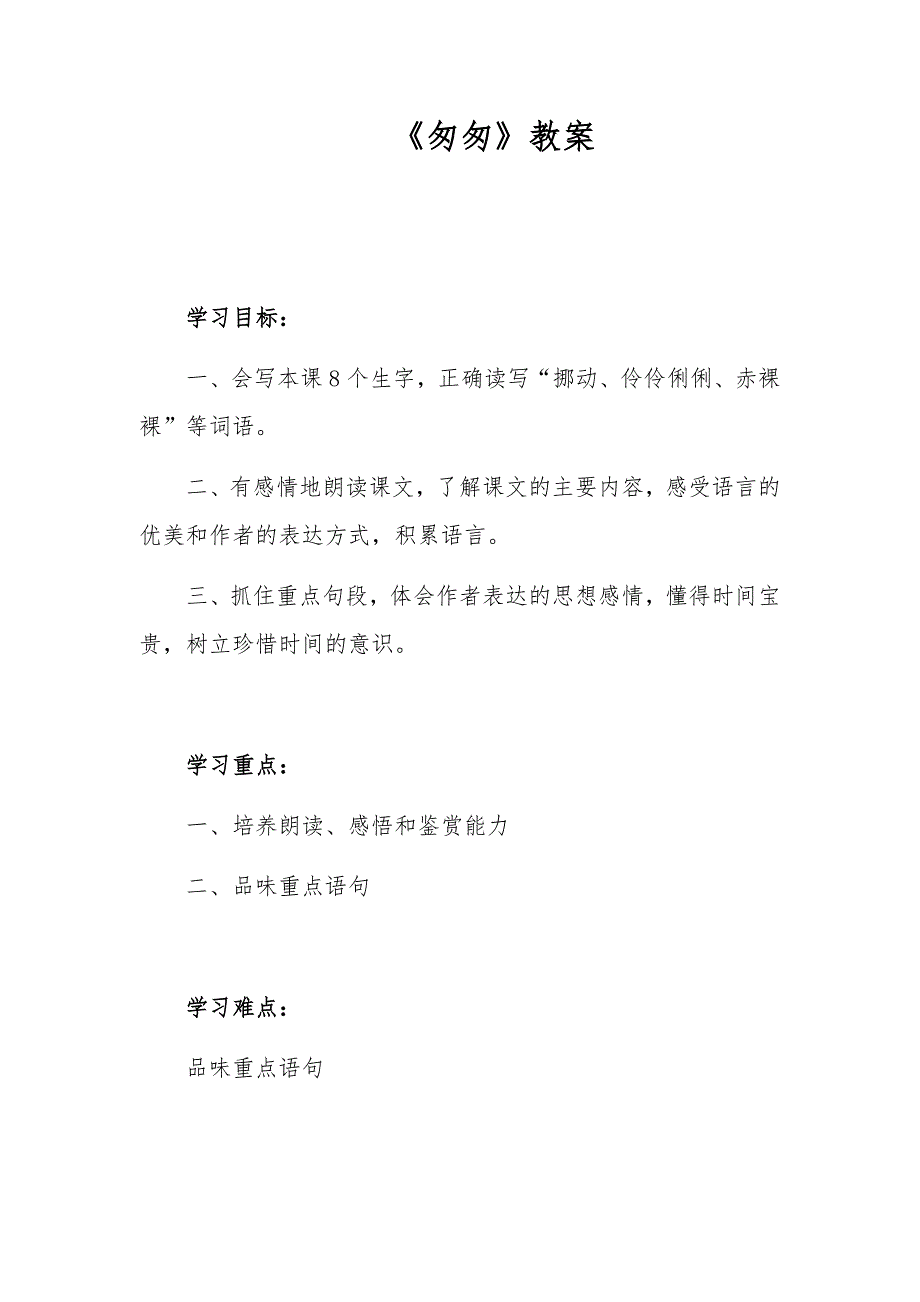 《匆匆》教案
学习目标：
一、会写本课8个生字，正确读写“挪动、伶伶俐俐、赤裸
裸”等词语。
二、有感情地朗读课文，了解课文的主要内容，感受语言的
优美和作者的表达方式，积累语言。
三、抓住重点句段，体会作者表达的思想感情，懂得时间宝
贵，树立珍惜时间的意识。
学习重点：
一、培养朗读、感悟和鉴赏能力
二、品味重点语句
学习难点：
品味重点语句